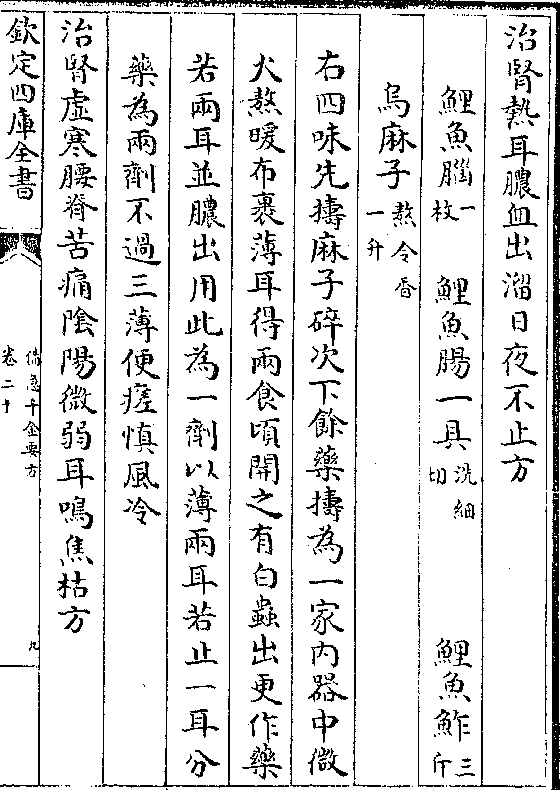 治腎熱耳膿血出溜日夜不止方
鯉魚腦一枚 鯉魚腸一具洗細切 鯉魚鮓三斤
烏麻子熬令香一升
右四味先擣麻子碎次下餘藥擣為一家内器中微
火熬暖布裹薄耳得兩食頃開之有白蟲出更作藥
若兩耳並膿出用此為一劑以薄兩耳若止一耳分
藥為兩劑不過三薄便瘥慎風冷
治腎虚寒腰脊苦痛陰陽微弱耳鳴焦枯方
欽定四庫全書
備急千金要方
卷二十
九